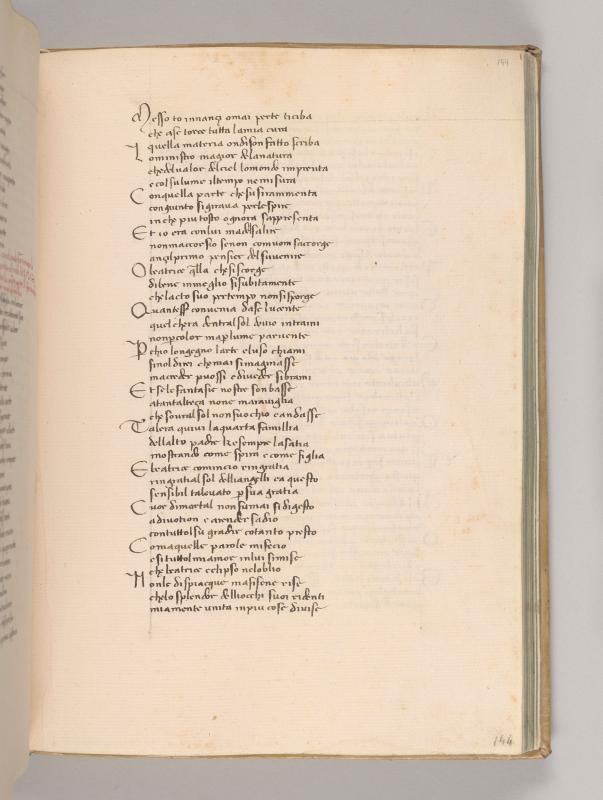 144
Messo to innançi omai perte ticiba
che ase torce tutta lamia cura
quella materia ondison fatto scriba
Lo ministro magior delanatura
chedelvalor delciel lomondo imprenta
e col sulume iltempo nemisura
Conquella parte che su sirammenta
congiunto sigirava perlespire
inche piu tosto ognora sappresenta
Et io era conlui madelsalire
nonmaccorsio senon comuom saccorge
ançilprimo pensier delsuvenire
O beatrice q̄lla chesiscorge
dibene inmeglio sisubitamente
chelacto suo pertempo nonsisporge
Quantess convenia dase lucente
quel chera dentralsol dovio intrami
nonp color map lume parvente
Perchio longegno larte eluso chiami
sinol direi chemai simaginasse
macreder puossi ediveder sibrami
Et sele fantasie nostre sonbasse
atantalteça none maraviglia
che sovralsol nonfuochio candasse
Talera quivi laquarta famillia
dellalto padre ke sempre lasatia
mostrando come spira e come figlia
E beatrice comincio ringratia
ringratialsol delliangelli ca questo
sensibil talevato p sua gratia
Cuor dimortal nonfumai sidigesto
adivotion e arender sadio
contuttolsu gradir cotanto presto
Comaquelle parole mifecio
e si tuttolmiamor inlui simise
che beatrice eclipso neloblio
Nonle dispiacque masisene rise
chelo splendor delliocchi suoi ridenti
miamente unita inpiu cose divise
144